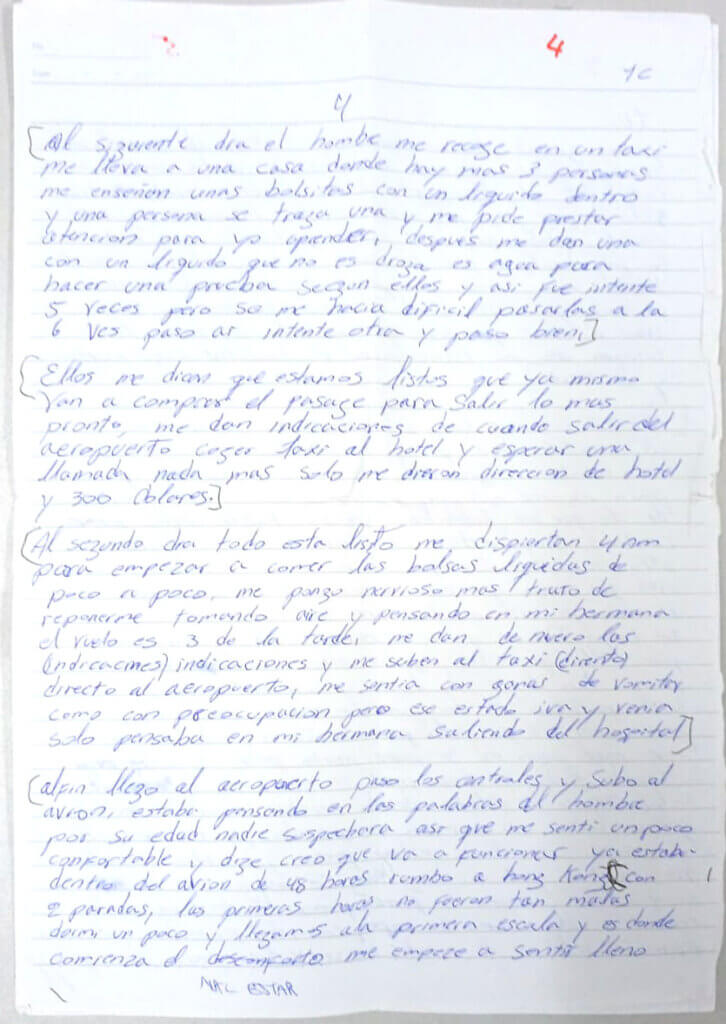 4
1C
4
[Al siguiente dia el hombe me recoge en un taxi
me lleva a una casa donde hay mas 3 personas
me enseñan unas bolsitas con un liquido dentro
y una persona se traga una y me pide prestar
atencion para yo aprender, despues me dan una
con un liquido que no es droga es agua para
hacer una prueba segun ellos y asi fue intente
5 veces pero se me hacia dificil pasarlas a la
6 ves paso ar intente otra y paso bien.]
[Ellos me dicen que estamos listos que ya mismo
van a comprar el pasage para salir lo mas
pronto, me dan indicaciones de cuando salir del
aeropuerto coger taxi al hotel y esperar una
llamada nada mas solo me dieron direcion de hotel
y 300 Dolares.]
[Al segundo dia todo esta listo me dispiertan 4 am
para empezar a comer las bolsas liquidas de
poco a poco, me pongo nervioso mas trato de
reponerme tomando aire y pensando en mi hermana
el vuelo es 3 de la tarde, me dan de nuevo las
(indicacines) indicaciones y me suben al taxi (dirento)
directo al aeropuerto, me sentia con ganas de vomitar
como con preocupacion pero ese estado iva y venia
solo pensaba en mi hermana saliendo del hospital]
(alfin llego al aeropuerto paso los controles y subo al
avion, estaba pensando en las palabras del hombre
por su edad nadie sospechara asi que me senti un poco
confortable y dige creo que va a funcionar ya estaba
dentro del avion de 48 horas rumbo a hong Kong con
2 paradas, las primeras horas no fueron tan malas
dormi un poco y llegamos a la primera escala y es donde
comienza el descomforto me empeze a sentir lleno
MAL ESTAR